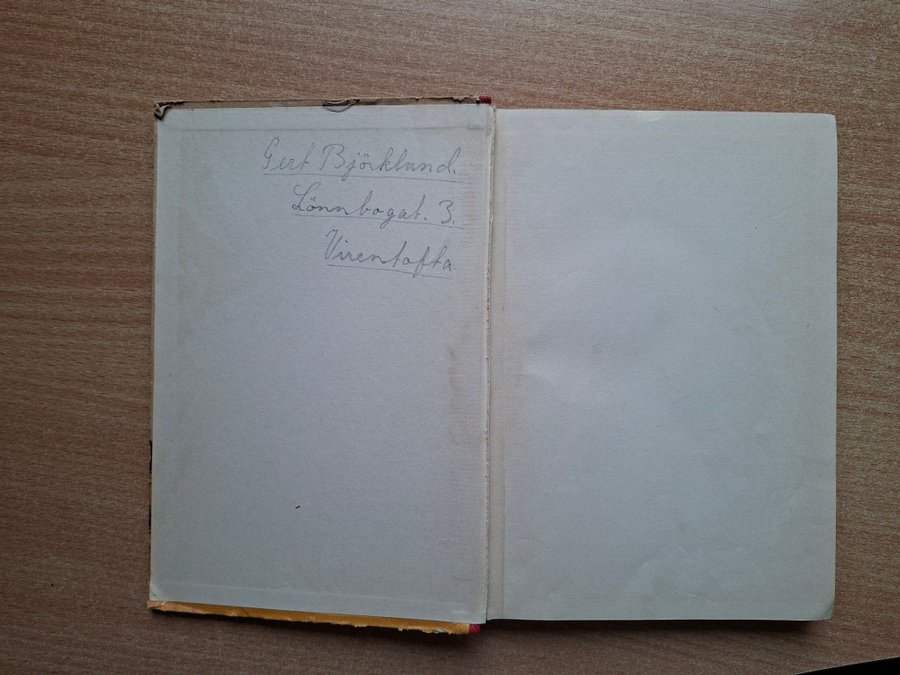 Gert Björklund.
Lönnbogat. 3.
Virentofta.